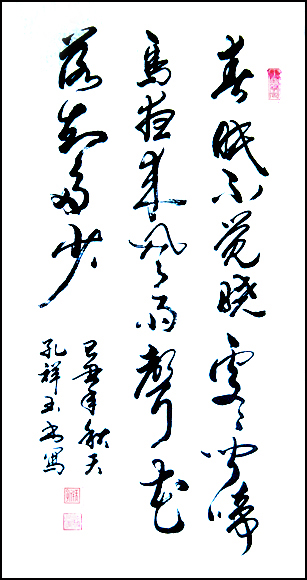 春眠不觉晓處々闻啼
鳥夜来风雨聲花
落知多少
己丑年秋天
孔祥玉书寫